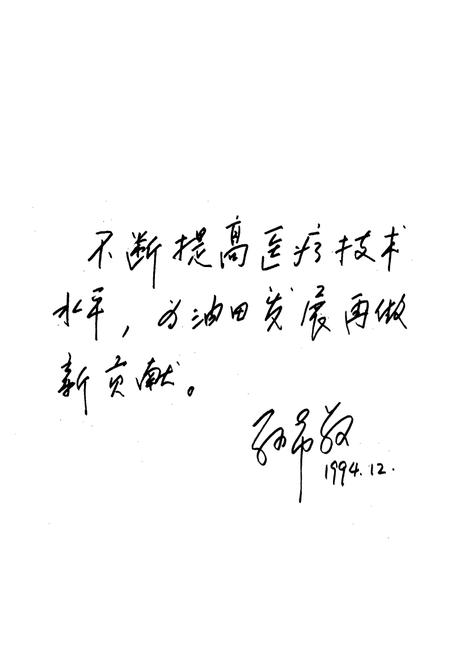 不断提高医疗技术
水平，为油田发展再做
新贡献。
孙希敬
1994.12.